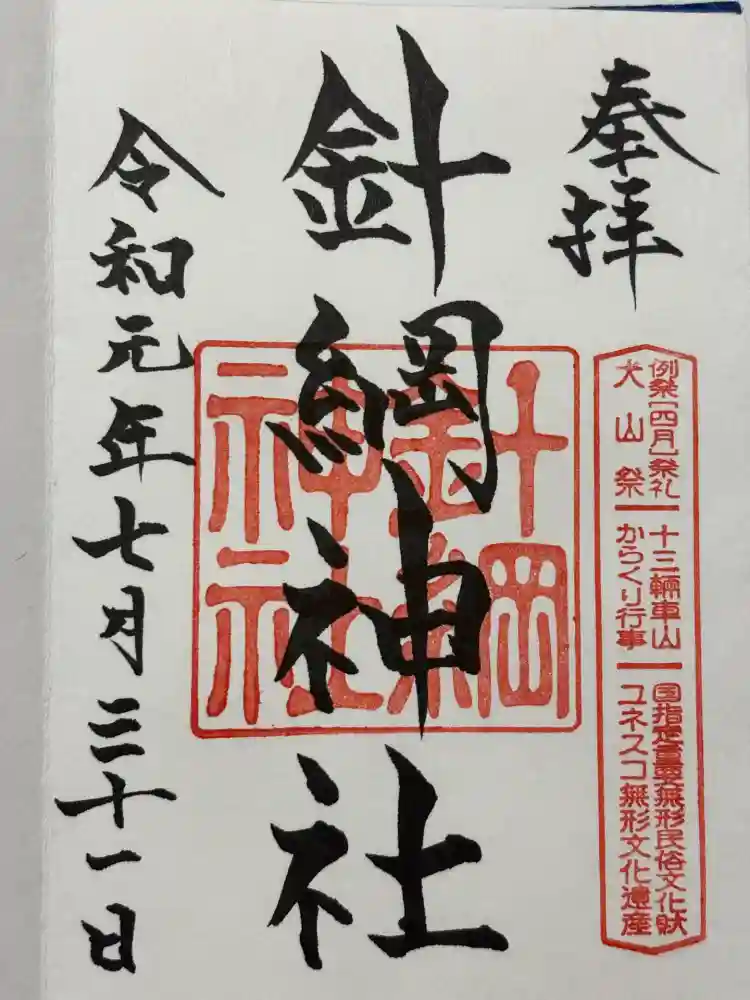 奉拝
例祭[四月]祭礼
犬山祭
十三輛車山
からくり行事
国指定重要無形民俗文化財
ユネスコ無形文化遺産
針綱神社
針綱
神社
令和元年七月三十一日